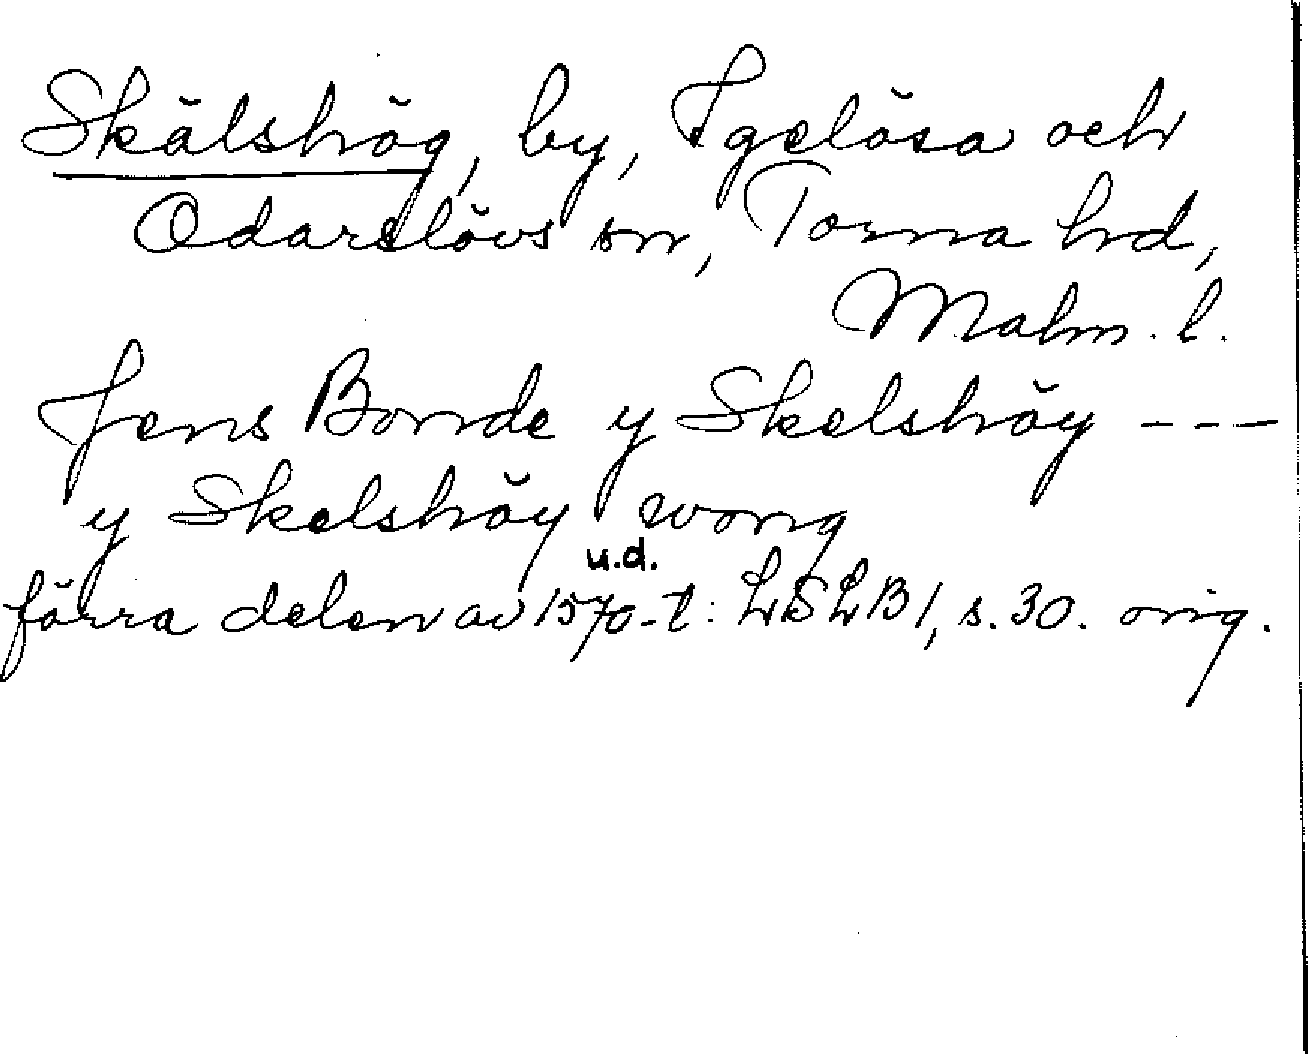 Skälshög, by, Igelösa och
Odarslövs sn, Torna hd,
Malm. l.
Jens Bonde y Skelshöy ---
y Skelshöy wong
u.d.
förra delen av 1570-t: LSLB1, s. 30. orig.